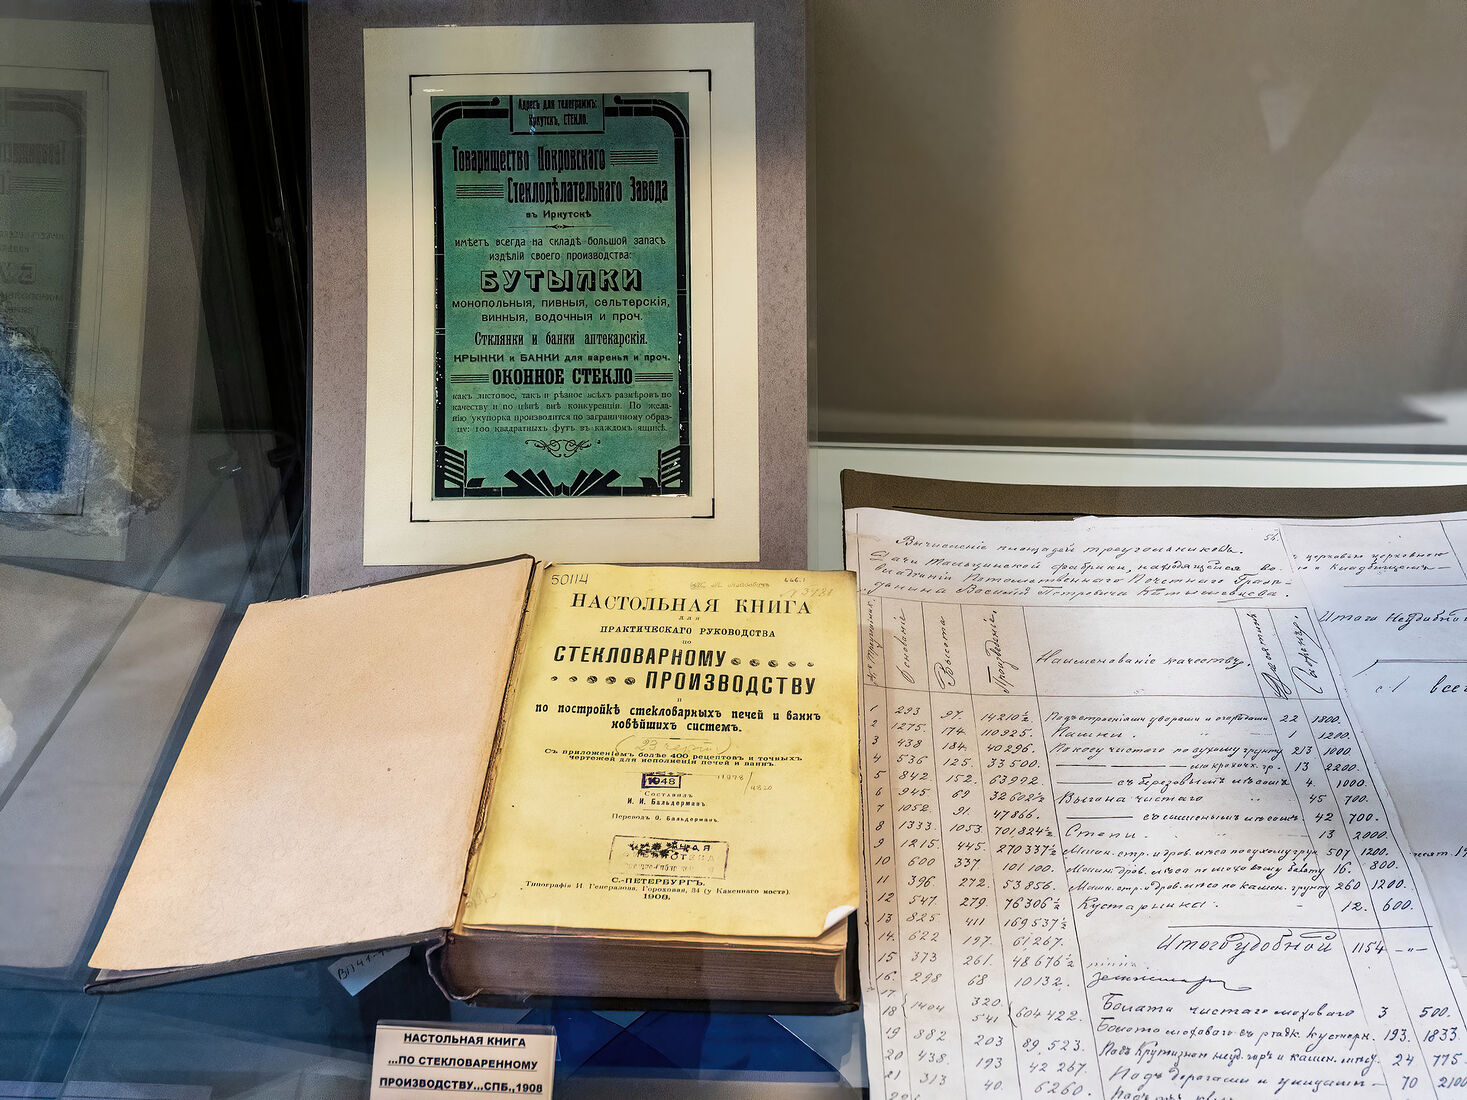 Адресъ для телеграммъ:
Иркутскъ, СТЕКЛО.
Товарищество Покровскаго
Стеклодѣлательнаго Завода
въ Иркутскѣ
имѣетъ всегда на складѣ большой запасъ
издѣлій своего производства:
БУТЫЛКИ
монопольныя, пивныя, сельтерскія,
винныя, водочныя и проч.
Стклянки и банки аптекарскія.
КРЫНКИ и БАНКИ для варенья и проч.
ОКОННОЕ СТЕКЛО
какъ листовое, такъ и рѣзное всѣхъ размѣровъ по
качеству и по цѣнѣ внѣ конкуренціи. По жела-
нію укупорка производится по заграничному образ-
цу: 100 квадратныхъ футъ въ каждомъ ящикѣ.
50114
НАСТОЛЬНАЯ КНИГА
для
ПРАКТИЧЕСКАГО РУКОВОДСТВА
по
СТЕКЛОВАРНОМУ
ПРОИЗВОДСТВУ
и
по постройкѣ стекловарныхъ печей и ваннъ
новѣйшихъ системъ.
Съ приложеніемъ болѣе 400 рецептовъ и точныхъ
чертежей для исполненія печей и ваннъ
1948
Составилъ
И. И. Бальдерманъ.
Переводъ О. Бальдерманъ.
С.-ПЕТЕРБУРГЪ.
Типографія И. Генералова, Гороховая, 34 (у Каменнаго моста).
1908.
НАСТОЛЬНАЯ КНИГА
...ПО СТЕКЛОВАРЕННОМУ
ПРОИЗВОДСТВУ...СПБ.,1908
56.
Вычисленіе площадей треугольниковъ.
Дачи Тальцинской фабрики, находящейся во
владѣніи Потомственнаго Почетнаго Граж-
данина Василія Петровича Катышевцева.
Основаніе Высота Произведеніе Наименованіе качествъ.
1 293 97. 14210½ Подъ строеніями дворами и огородами 22 1800.
2 1275. 174. 110925. Пашни 1 1200.
3 438 184. 40296. Покосу чистаго по сухому грунту 213 1000
4 536 125. 33500. 13 2200.
5 842 152. 63992. съ березовымъ лѣсомъ 4. 1000.
6 945 69 32602½ Выгона чистаго 45 700.
7 1052. 91. 47866. 42 700.
8 1333. 1053 701824½ Степи 13 2000.
9 1215. 445. 270337½ 507 1200.
10 600 337. 101100. 16. 800.
11 396 272. 53856. 260 1200.
12 547 279. 76306½ Кустарника 12. 600.
13 825 411 169537½
14. 622 197. 61267. Итого удобной 1154
15 373 261. 48676½
16. 298 68 10132.
17
18 1404 320. 541 604422. Болота чистаго моховаго 3 500.
19 882 203 89,523. 193. 1833.
20 438. 193 42267. 24 775.
21 313 40. 6260. Подъ дорогами и улицами 70 2100
Итого неудобной
всег